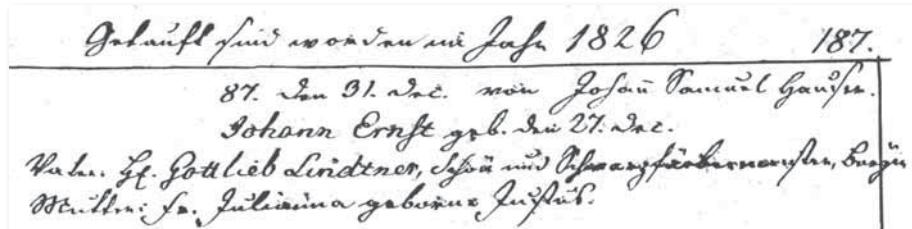 Getauft sind worden im Jahr 1826 187.
87. den 31. Dec. von Johañ Samuel Hauser.
Johann Ernst geb. den 27. Dec.
Vater: H. Gottlieb Lindtner, Schön und Schwarzfärbermeister,
Mutter: Fr. Julianna geborne Justus.